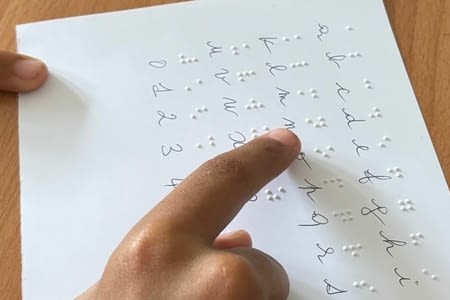 a b c d e f g h i
k l m n o p q r s
u v w x
0 1 2 3 4